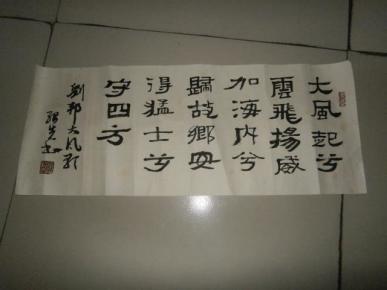 大風起兮
雲飛揚威
加海内兮
歸故鄉安
得猛士兮
守四方
劉邦大風歌